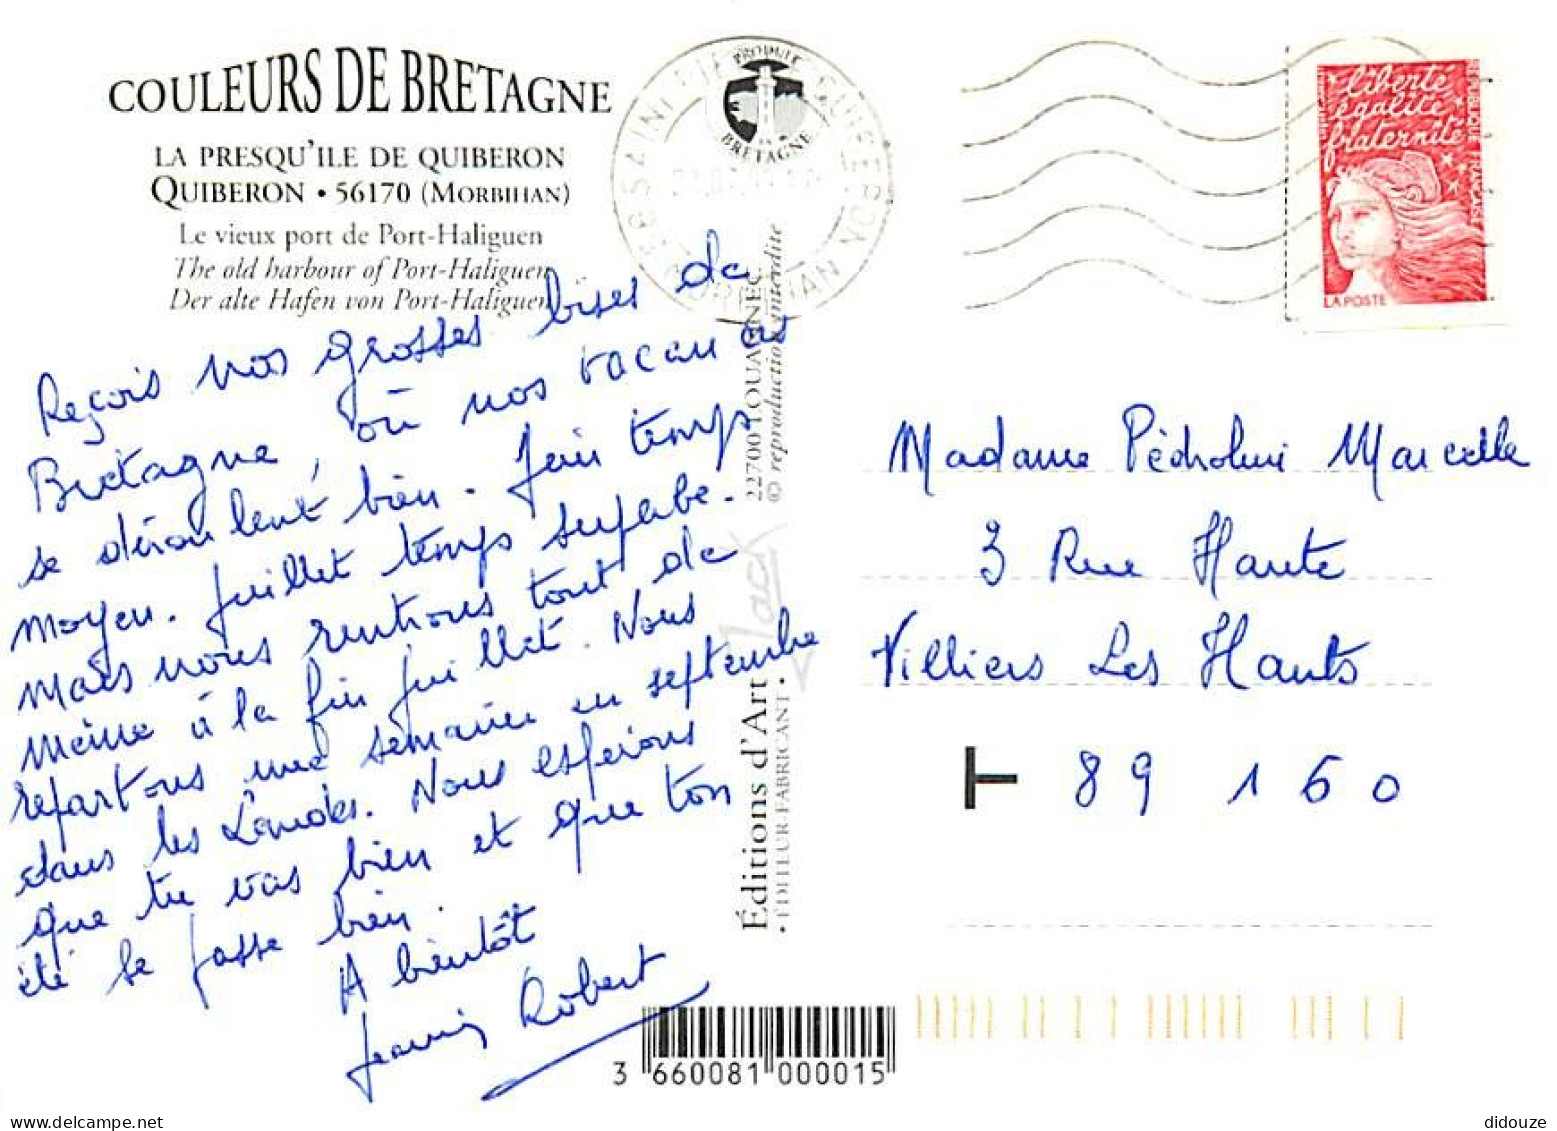 COULEURS DE BRETAGNE
LA PRESQU'ILE DE QUIBERON
QUIBERON • 56170 (MORBIHAN)
Le vieux port de Port-Haliguen
The old harbour of Port-Haliguen
Der alte Hafen von Port-Haliguen
PRODUIT EN BRETAGNE
56 SAINT PIERRE QUIBERON
MORBIHAN
liberté
égalité
fraternité
RÉPUBLIQUE FRANÇAISE
LA POSTE
Reçois nos grosses bises de
Bretagne, où nos vacances
se déroulent bien. Juin temps
moyen. Juillet temps superbe.
Mais nous rentrons tout de
même à la fin juillet. Nous
repartons une semaine en septembre
dans les Landes. Nous espérons
que tu vas bien et que ton
été se passe bien.
A bientôt
Robert
Éditions d'Art Jack
• ÉDITEUR-FABRICANT •
22700 LOUANNEC
© reproduction interdite
Madame Marcelle
3 Rue Haute
Villiers Les Hauts
89 160
3 660081 000015
didouze